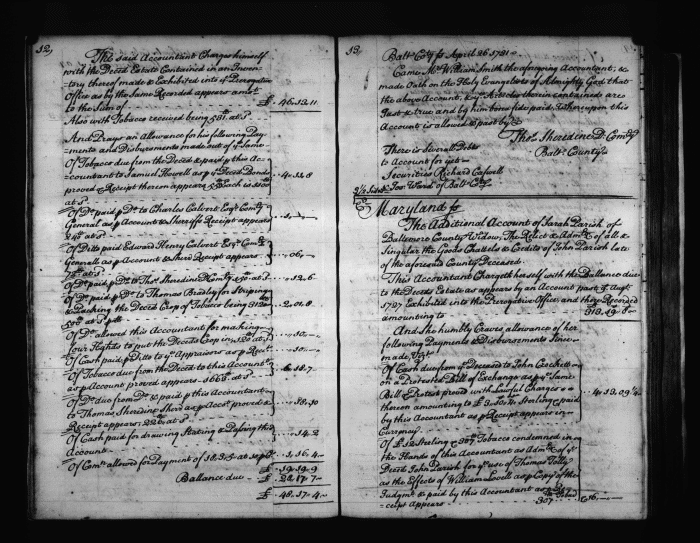 12,
The said Accountant Charges himself
with the Decds Estate Contained in an Inven-
tory thereof made & Exhibited into ye Prerogative
Office as by the Same Recorded appears amotg
to the Sum of £ 46.13.11
Also with Tobacco received being 581 at P
And Prays an Allowance for his following Pay-
ments and Disbursements made out of ye Same
Of Tobacco due from the Decd & paid p this Ac-
countant to Samuel Howell as p ye Decds Bond
proved & Receipt thereon appears
at P
Of Do paid p Do to Charles Calvert Esqr Comry
General as p Account & Sheriffs Receipt appears
at P
Of Ditto paid Edward Henry Calvert Esqr Comry
Generall as p Account & Sherrs Receipt appears
at P
Of Do paid p Do to Thos Sheredine
Of Do paid p Do to Thomas Bradley for Striping
& Packing the Decds Crop of Tobacco being 312
500 at P
Of Do allowed this Accountant for making
four Hghds to put the Decds Crop in, 120 at P
Of Cash paid p Ditto to ye Appraisors as p Rect
Of Tobacco due from the Decd to this Accountt
as p Account proved appears 1668 at P
Of Do due from Do & paid p this Accountant
to Thomas Sheredine Sherr as p Acct proved &
Receipt appears 226 at P
Of Cash paid for drawing Stating & Passing this
Account
Of Coms allowed for Payment of
£ 19.19.9
Ballance due £ 28.17.7
£ 48.17.4
13,
Balto Coty ss April 26 1731
Came Mr William Smith the aforegoing Accountant, &
made Oath on the Holy Evangelists of Almighty God that
the above Account, & ye Articles therein contained are
Just & true and by him bona fide paid, Whereupon this
Account is allowed & past by
Thos Sheredine D Comry
Balto County
There is Severall Debts
to Account for yet
Securities Richard Caswell
Jos: Ward of Balto Coty
Maryland ss
The Additional Account of Sarah Parish of
Baltemore County Widow, The Relict & Admx of all &
Singular the Goods Chattels & Credits of John Parish late
of the aforesd County Deceased.
This Accountant Chargeth herself with the Ballance due
to the Decds Estate as appears by an Account past ye Augst
1727 Exhibited into the Prerogative Office and there Recorded
amounting to 318.19.8
And She humbly Craves allowance of her
following Payments & Disbursements Since
made Vizt
Of Cash due from ye Deceased to John Crockett
on a Protested Bill of Exchange as p ye Same
Bill & Protest proved with Lawful Charges &
thereon amounting to £ Sterling & paid
by this Accountant as p Receipt appears in
Currency
Of £ 12 Sterling & 307 Tobacco condemned in
the Hands of this Accountant as Admx of ye
Decd John Parish for ye use of Thomas Tolly
as the Effects of William Lovell as p Copy of the
Judgmt & paid by this Accountant as p Re-
ceipt appears 307